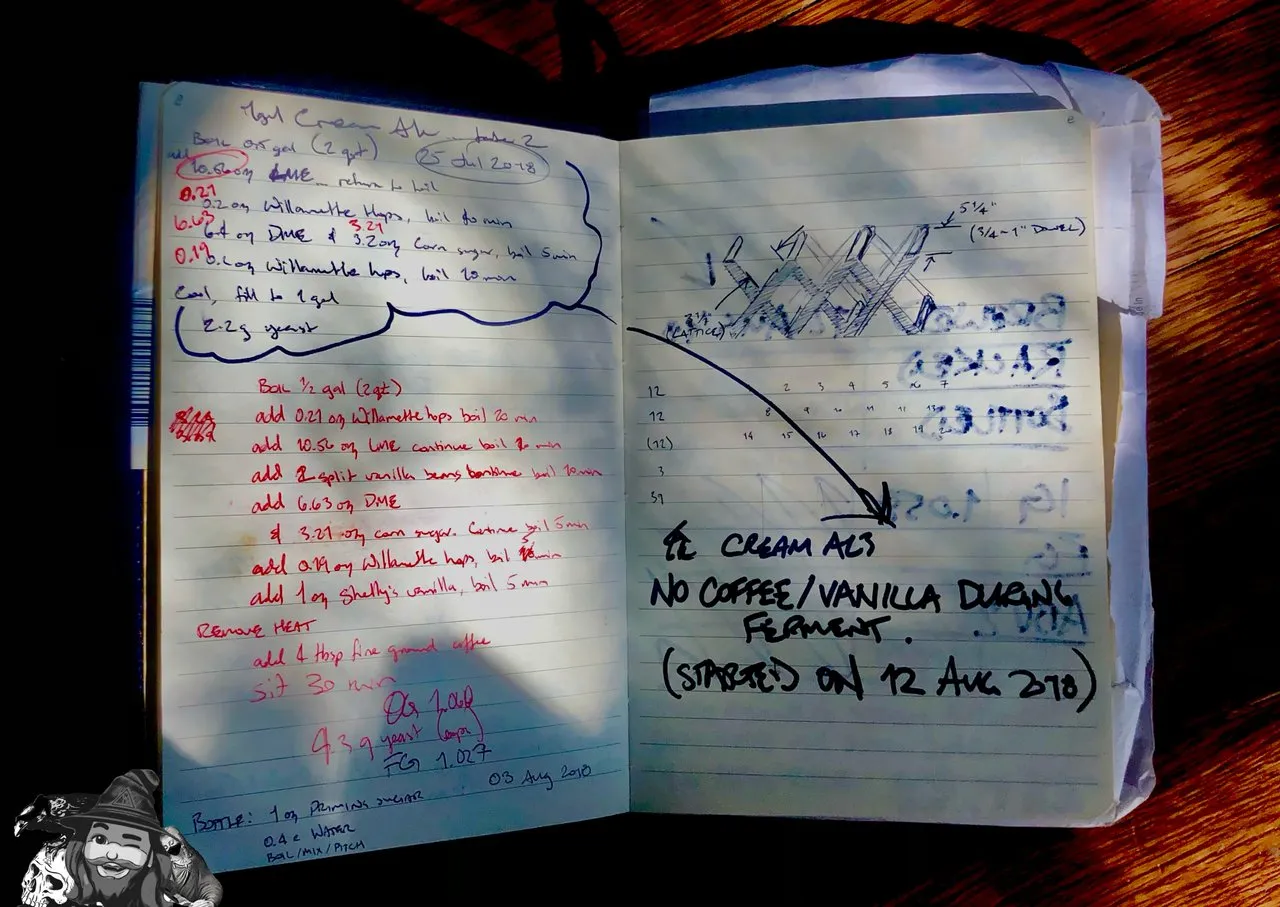 1gal Cream Ale take 2
Boil 0.5 gal (2 qrt)
25 Jul 2018
add 10.56 oz LME return to boil
0.21
0.2 oz Willamette Hops, boil 10 min
6.63 3.21
6.4 oz DME & 3.2 oz Corn sugar, boil 5 min
0.19
0.2 oz Willamette hops, boil 20 min
Cool, fill to 1 gal
2.2 g yeast
Boil 1/2 gal (2qt)
add 0.21 oz Willamette hops boil 20 min
add 10.56 oz LME continue boil min
add 2 split vanilla beans continue boil 10 min
add 6.63 oz DME
& 3.21 oz corn sugar. Continue boil 5 min
add 0.19 oz Willamette hops, boil min
add 1 oz Shelly's vanilla, boil 5 min
REMOVE HEAT
add 4 tbsp fine ground coffee
sit 30 min
OG 1.060
4.3 g yeast
FG 1.027
03 Aug 2018
BOTTLE: 1 oz PRIMING SUGAR
0.4 c WATER
BOIL/MIX/PITCH
5 1/4"
(3/4 - 1" DOWEL)
(LATTICE)
12 2 3 4 5 6 7
12 8 9 10 11 12 13
(12) 14 15 16 17 18 19 20
3
39
CREAM ALE
NO COFFEE/VANILLA DURING
FERMENT.
(STARTED ON 12 AUG 2018)